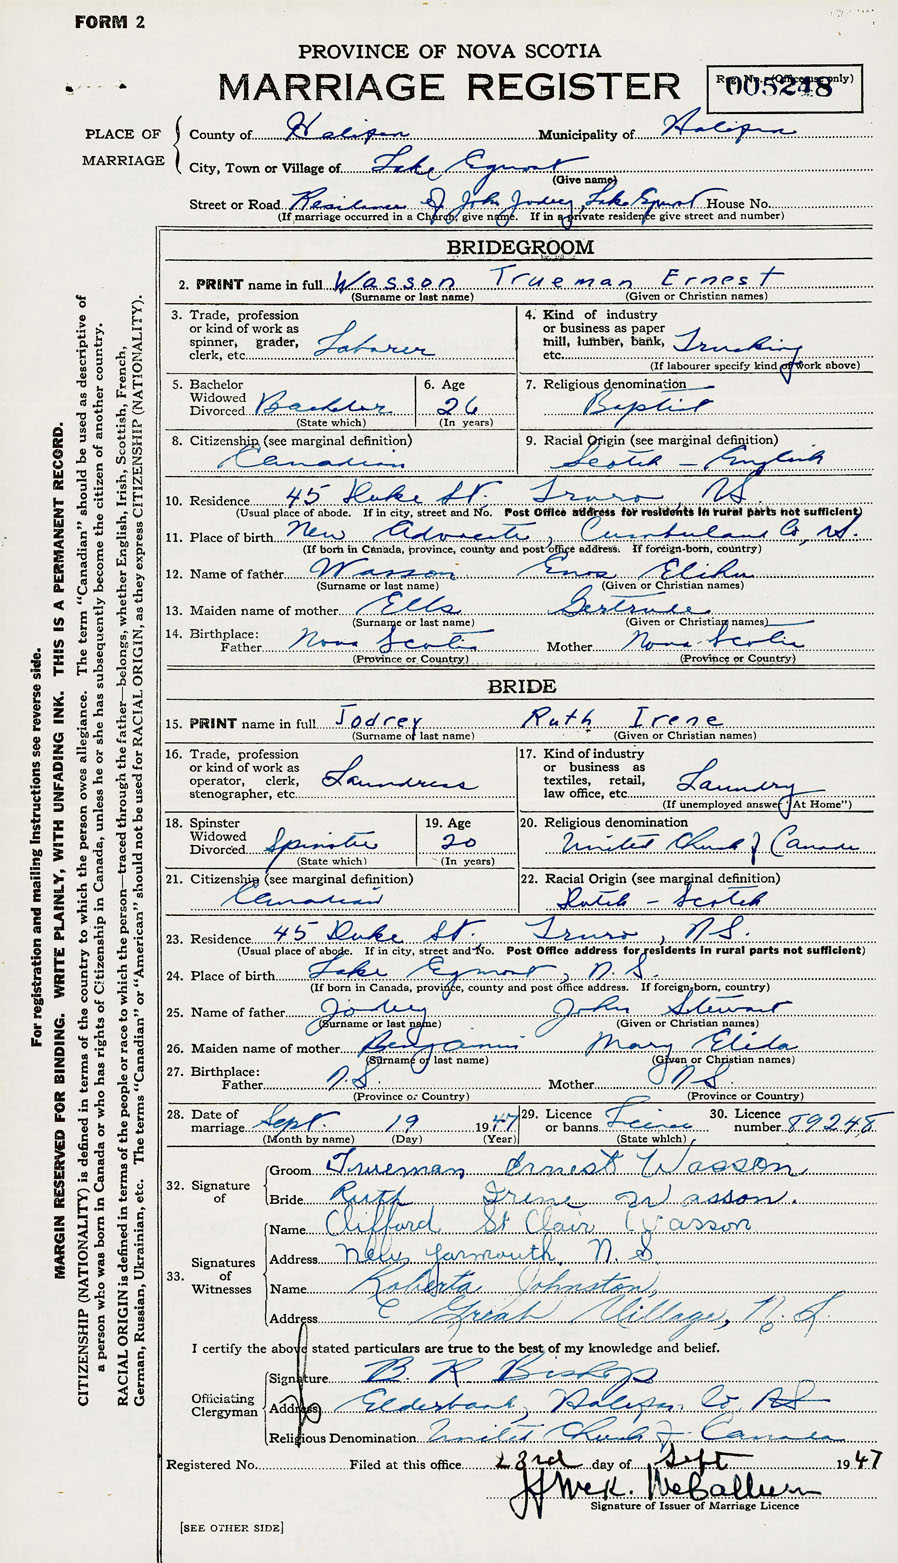 FORM 2
PROVINCE OF NOVA SCOTIA
MARRIAGE REGISTER
Reg. No. (Office use only)
005248
PLACE OF MARRIAGE
County of Halifax Municipality of Halifax
City, Town or Village of Lake Egmont
(Give name)
Street or Road Residence of John Jodrey, Lake Egmont House No.
(If marriage occurred in a Church, give name. If in a private residence give street and number)
BRIDEGROOM
2. PRINT name in full Wasson Trueman Ernest
(Surname or last name) (Given or Christian names)
3. Trade, profession or kind of work as spinner, grader, clerk, etc. Laborer
4. Kind of industry or business as paper mill, lumber, bank, etc. Trucking
(If labourer specify kind of work above)
5. Bachelor Widowed Divorced Bachelor
(State which)
6. Age 26
(In years)
7. Religious denomination Baptist
8. Citizenship (see marginal definition) Canadian
9. Racial Origin (see marginal definition) Scotch - English
10. Residence 45 Duke St. Truro, NS.
(Usual place of abode. If in city, street and No. Post Office address for residents in rural parts not sufficient)
11. Place of birth New Advocate, Cumberland Co, N.S.
(If born in Canada, province, county and post office address. If foreign-born, country)
12. Name of father Wasson Enos Elihu
(Surname or last name) (Given or Christian names)
13. Maiden name of mother Ells Gertrude
(Surname or last name) (Given or Christian names)
14. Birthplace:
Father Nova Scotia Mother Nova Scotia
(Province or Country) (Province or Country)
BRIDE
15. PRINT name in full Jodrey Ruth Irene
(Surname or last name) (Given or Christian names)
16. Trade, profession or kind of work as operator, clerk, stenographer, etc. Laundress
17. Kind of industry or business as textiles, retail, law office, etc. Laundry
(If unemployed answer "At Home")
18. Spinster Widowed Divorced Spinster
(State which)
19. Age 20
(In years)
20. Religious denomination United Church of Canada
21. Citizenship (see marginal definition) Canadian
22. Racial Origin (see marginal definition) Dutch - Scotch
23. Residence 45 Duke St. Truro, N.S.
(Usual place of abode. If in city, street and No. Post Office address for residents in rural parts not sufficient)
24. Place of birth Lake Egmont, N.S.
(If born in Canada, province, county and post office address. If foreign-born, country)
25. Name of father Jodrey John Stewart
(Surname or last name) (Given or Christian names)
26. Maiden name of mother Benjamin Mary Elida
(Surname or last name) (Given or Christian names)
27. Birthplace:
Father N.S. Mother N.S.
(Province or Country) (Province or Country)
28. Date of marriage Sept. 19 1947
(Month by name) (Day) (Year)
29. Licence or banns License
(State which)
30. Licence number 89248
32. Signature of
Groom Trueman Ernest Wasson
Bride Ruth Irene Wasson.
33. Signatures of Witnesses
Name Clifford St Clair Wasson
Address New Yarmouth, N.S
Name Roberta Johnston,
Address Great Village, N.S.
I certify the above stated particulars are true to the best of my knowledge and belief.
Officiating Clergyman
Signature B. R Bishop
Address Elderbank, Halifax Co NS
Religious Denomination United Church of Canada
Registered No. Filed at this office 23rd day of Sept 1947
McCallum
Signature of Issuer of Marriage Licence
[SEE OTHER SIDE]
For registration and mailing instructions see reverse side.
MARGIN RESERVED FOR BINDING. WRITE PLAINLY, WITH UNFADING INK. THIS IS A PERMANENT RECORD.
CITIZENSHIP (NATIONALITY) is defined in terms of the country to which the person owes allegiance. The term "Canadian" should be used as descriptive of
a person who was born in Canada or who has rights of Citizenship in Canada, unless he or she has subsequently become the citizen of another country.
RACIAL ORIGIN is defined in terms of the people or race to which the person—traced through the father—belongs, whether English, Irish, Scottish, French,
German, Russian, Ukrainian, etc. The terms "Canadian" or "American" should not be used for RACIAL ORIGIN, as they express CITIZENSHIP (NATIONALITY).